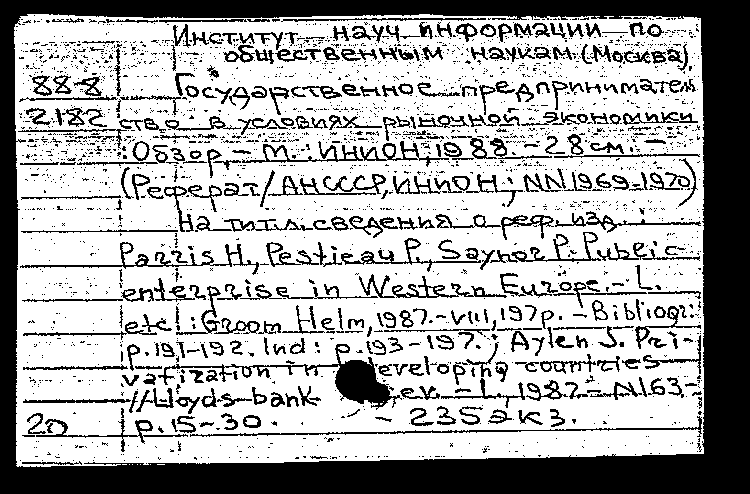 Институт науч информации по
общественным наукам (Москва)
88-8 Государственное предприниматель
2182 ство в условиях рыночной экономики
: Обзор. - М. : ИНИОН, 1988. - 28 см. -
(Реферат / АНСССР, ИНИОН ; NN 1969-1970)
На тит.л. сведения о реф. изд. :
Parris H., Pestieau P., Saynor P. Public
enterprise in Western Europe. - L.
etc! : Groom Helm, 1987. - VIII, 197 p. - Bibliogr.:
p. 191-192. Ind: p. 193-197. ; Aylen J. Pri-
vatization in developing countries
// Lloyds bank ev. - L., 1987. - N163 -
20 p. 15-30. - 235 экз.